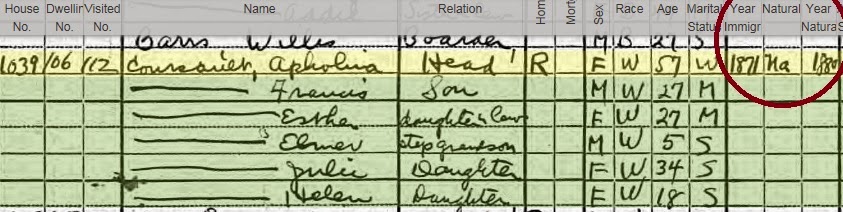 House Dwellin Visited Name Relation Hom Mort Sex Race Age Marital Year Natural Year
No. No. No. Status Immigr Natura S
Willis Boarder M B 27 S
1039 106 112 Apholnia Head R F W 57 W 1871 Na 1880
Francis Son M W 27 M
Esther daughter in law F W 27 M
Elmer stepgrandson M W 5 S
Julie Daughter F W 34 S
Helen Daughter F W 18 S